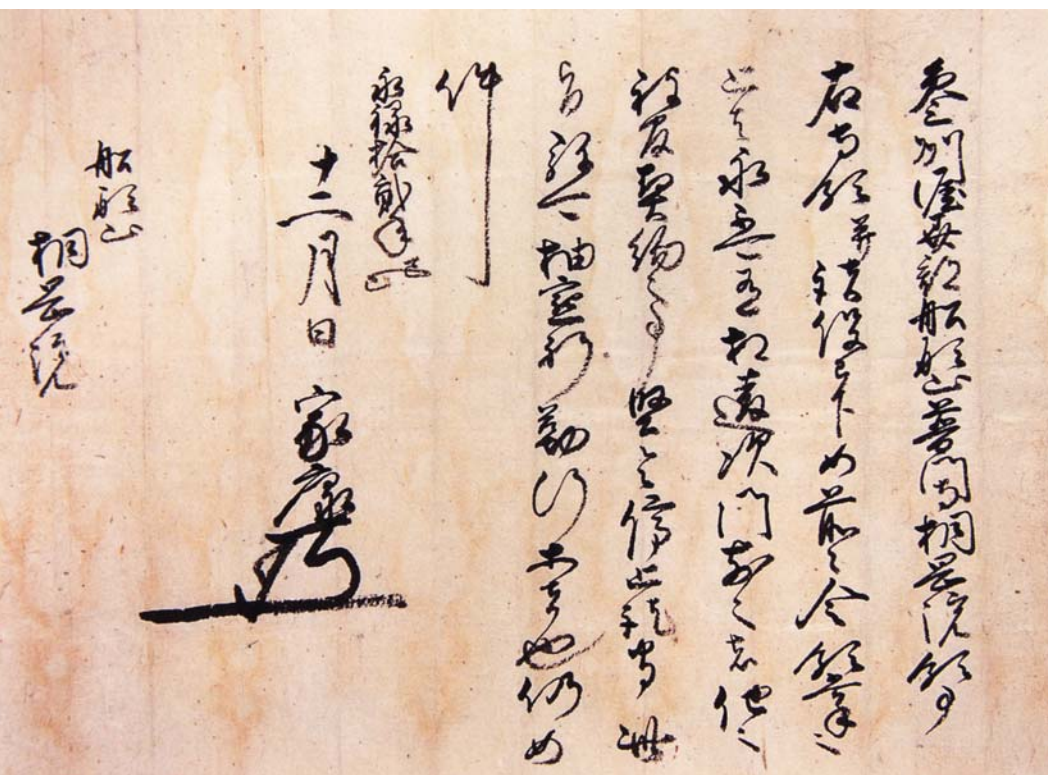 参州渥美郡船形山普門寺桐岡院領事
右寺領并諸役已下如前々令領掌之
上者永不可有相違次門前之者他之
被官契約之事堅令停止訖守此
旨弥可抽懇祈勤行等者也仍如
件
永禄拾弐年己巳
十二月日 家康
船形山
桐岡院